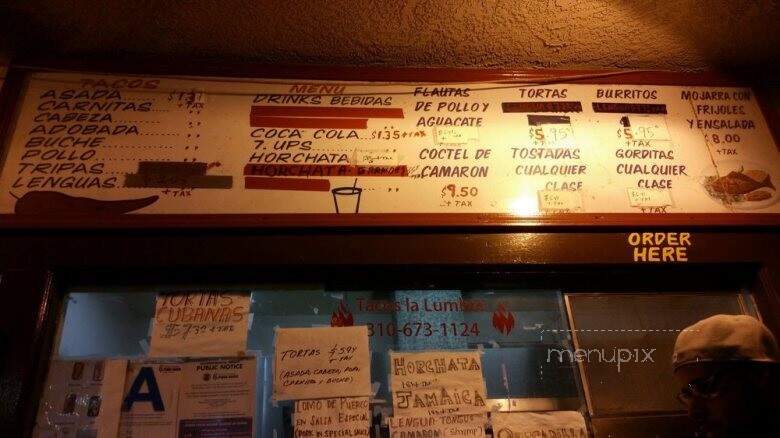 TACOS
ASADA
CARNITAS
+ TAX
CABEZA
ADOBADA
BUCHE
POLLO
TRIPAS
LENGUAS
MENU
DRINKS BEBIDAS
COCA COLA $1.35 + TAX
7. UPS
HORCHATA
HORCHATA GRANDE
FLAUTAS
DE POLLO Y
AGUACATE
COCTEL DE
CAMARON
$9.50
+ TAX
TORTAS
$5.95
+ TAX
TOSTADAS
CUALQUIER
CLASE
BURRITOS
$5.95
+ TAX
GORDITAS
CUALQUIER
CLASE
+ TAX
MOJARRA CON
FRIJOLES
Y ENSALADA
$8.00
+ TAX
ORDER
HERE
Tacos la Lumbre
310-673-1124
TORTAS
CUBANAS
+ TAX
A
PUBLIC NOTICE
TORTAS
+ TAX
(ASADA, CABEZA,
CARNITAS, BUCHE)
LOMO DE PUERCO
EN SALSA ESPECIAL
(PORK IN SPECIAL SAUCE)
HORCHATA
JAMAICA
LENGUA-TONGUE
CAMARON (SHRIMP)
menupix